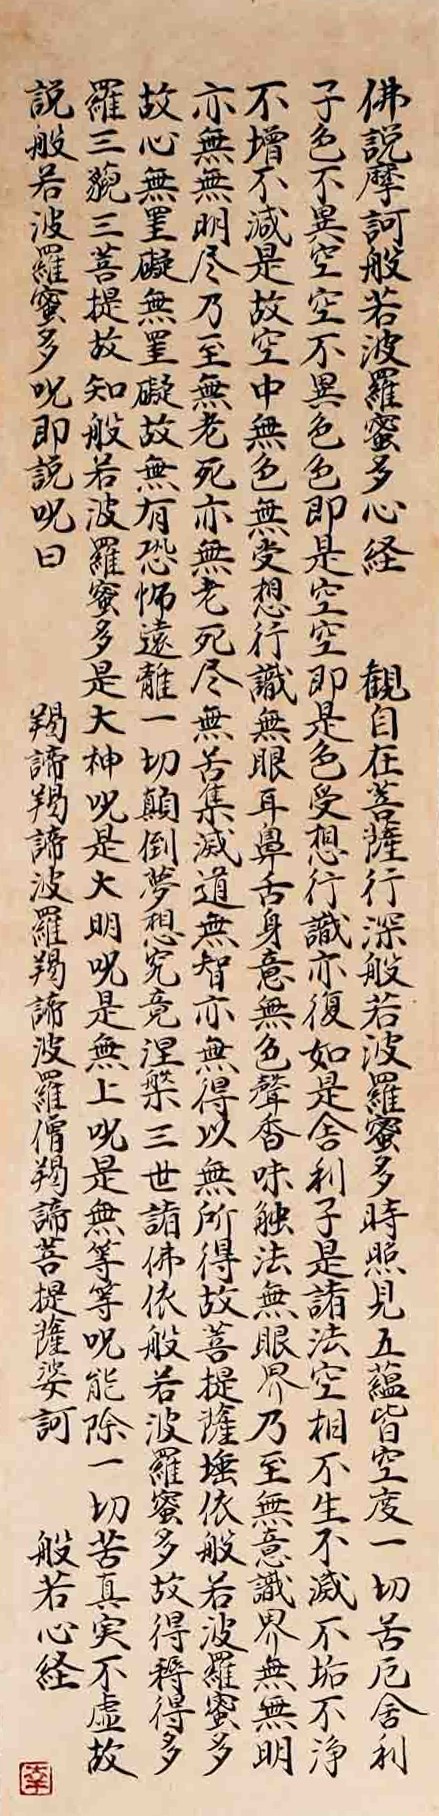 佛説摩訶般若波羅蜜多心経 観自在菩薩行深般若波羅蜜多時照見五蘊皆空度一切苦厄舎利
子色不異空空不異色色即是空空即是色受想行識亦復如是舎利子是諸法空相不生不滅不垢不浄
不増不減是故空中無色無受想行識無眼耳鼻舌身意無色聲香味触法無眼界乃至無意識界無無明
亦無無明尽乃至無老死亦無老死尽無苦集滅道無智亦無得以無所得故菩提薩埵依般若波羅蜜多
故心無罣礙無罣礙故無有恐怖遠離一切顛倒夢想究竟涅槃三世諸佛依般若波羅蜜多故得得多
羅三藐三菩提故知般若波羅蜜多是大神呪是大明呪是無上呪是無等等呪能除一切苦真実不虚故
説般若波羅蜜多呪即説呪曰 羯諦羯諦波羅羯諦波羅僧羯諦菩提薩婆訶 般若心経